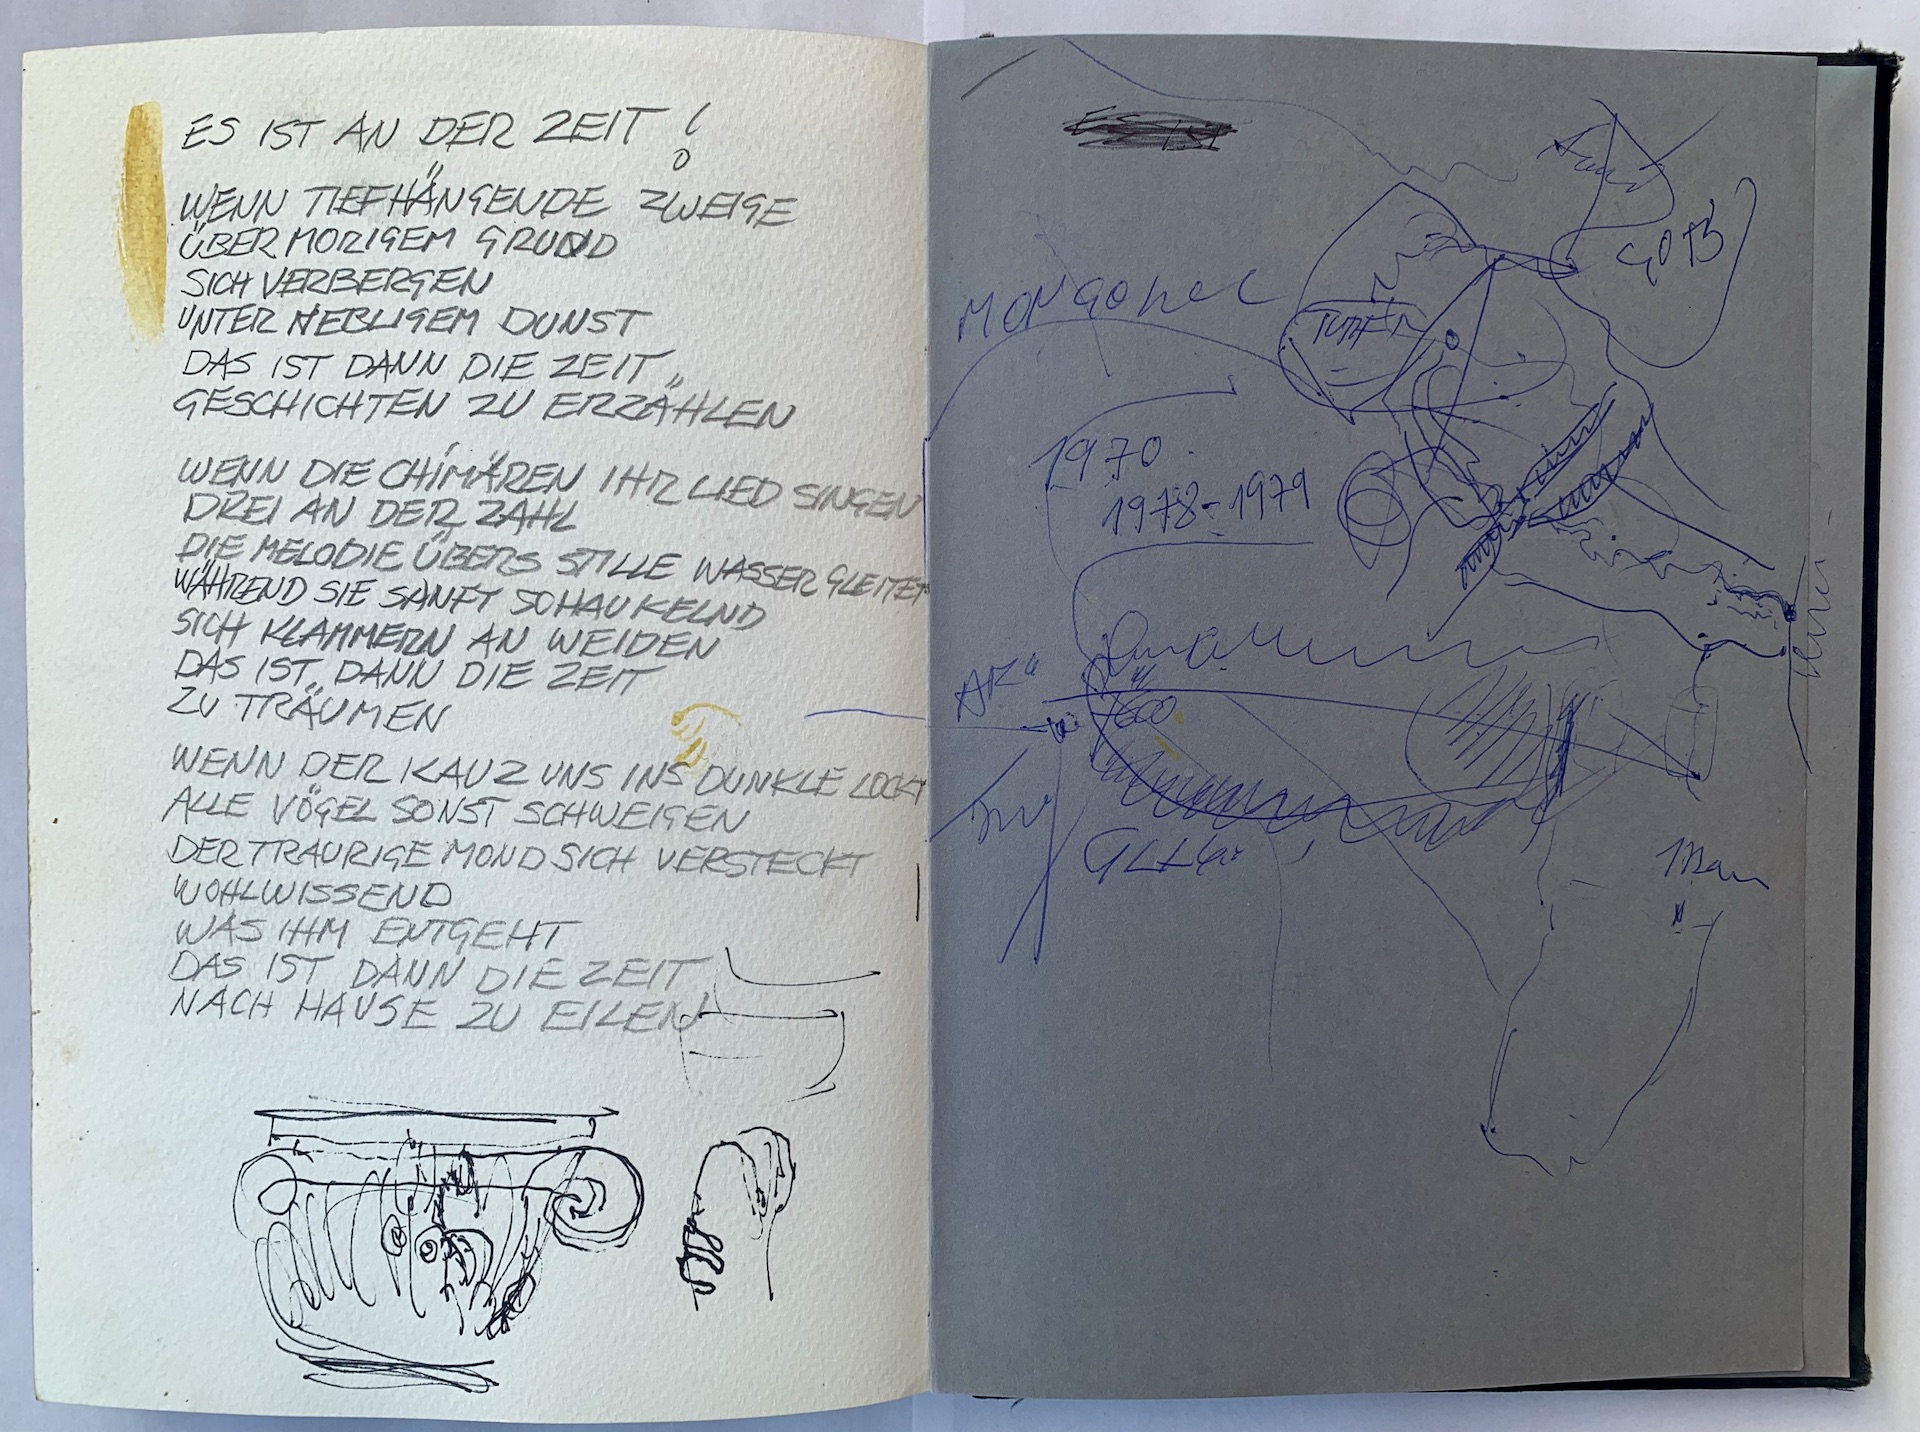 ES IST AN DER ZEIT!
WENN TIEFHÄNGENDE ZWEIGE
ÜBER MORIGEM GRUND
SICH VERBERGEN
UNTER NEBLIGEM DUNST
DAS IST DANN DIE ZEIT
GESCHICHTEN ZU ERZÄHLEN
WENN DIE CHIMÄREN IHR LIED SINGEN
DREI AN DER ZAHL
DIE MELODIE ÜBERS STILLE WASSER GLEITET
WÄHREND SIE SANFT SCHAUKELND
SICH KLAMMERN AN WEIDEN
DAS IST DANN DIE ZEIT
ZU TRÄUMEN
WENN DER KAUZ UNS INS DUNKLE LOCKT
ALLE VÖGEL SONST SCHWEIGEN
DER TRAURIGE MOND SICH VERSTECKT
WOHLWISSEND
WAS IHM ENTGEHT
DAS IST DANN DIE ZEIT
NACH HAUSE ZU EILEN
ES IST
1970
1978-1979